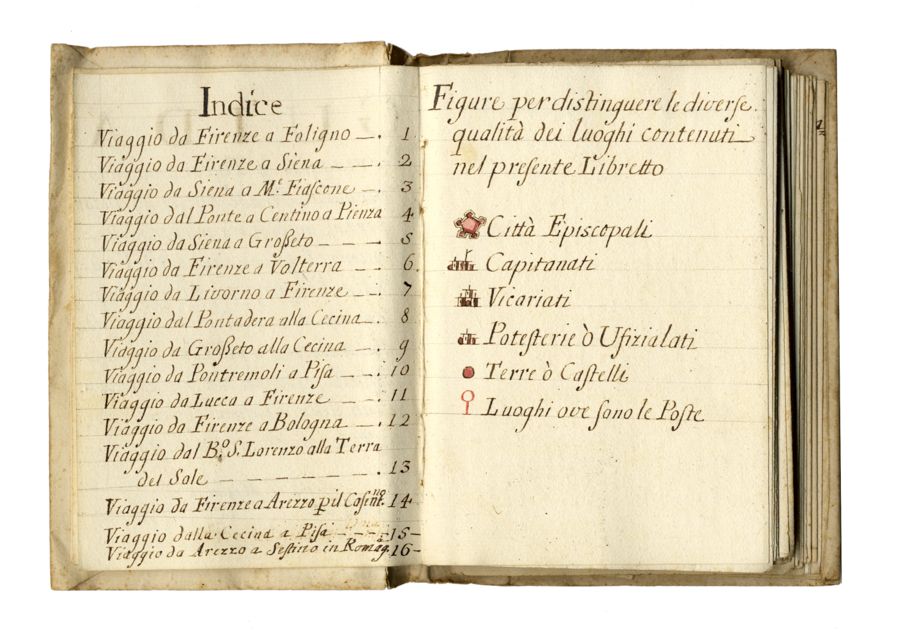 Indice
Viaggio da Firenze a Foligno —. 1
Viaggio da Firenze a Siena — — —. 2
Viaggio da Siena a M.e Fiascone —. 3
Viaggio dal Ponte a Centino a Pienza 4
Viaggio da Siena a Großeto — — — 5
Viaggio da Firenze a Volterra — —. 6.
Viaggio da Livorno a Firenze — —. 7
Viaggio dal Pontadera alla Cecina —. 8
Viaggio da Großeto alla Cecina — —. 9
Viaggio da Pontremoli a Pisa — —. 10
Viaggio da Lucca a Firenze — —. 11
Viaggio da Firenze a Bologna — —. 12
Viaggio dal B.o S. Lorenzo alla Terra
del Sole — — — — — —. 13
Viaggio da Firenze a Arezzo p il Casent.no 14
Viaggio dalla Cecina a Pisa — — — 15 —
Viaggio da Arezzo a Sestino in Romag.a 16 —
Figure per distinguere le diverse
qualità dei luoghi contenuti
nel presente Libretto
Città Episcopali
Capitanati
Vicariati
Potesterie ò Ufizialati
Terre ò Castelli
Luoghi ove sono le Poste